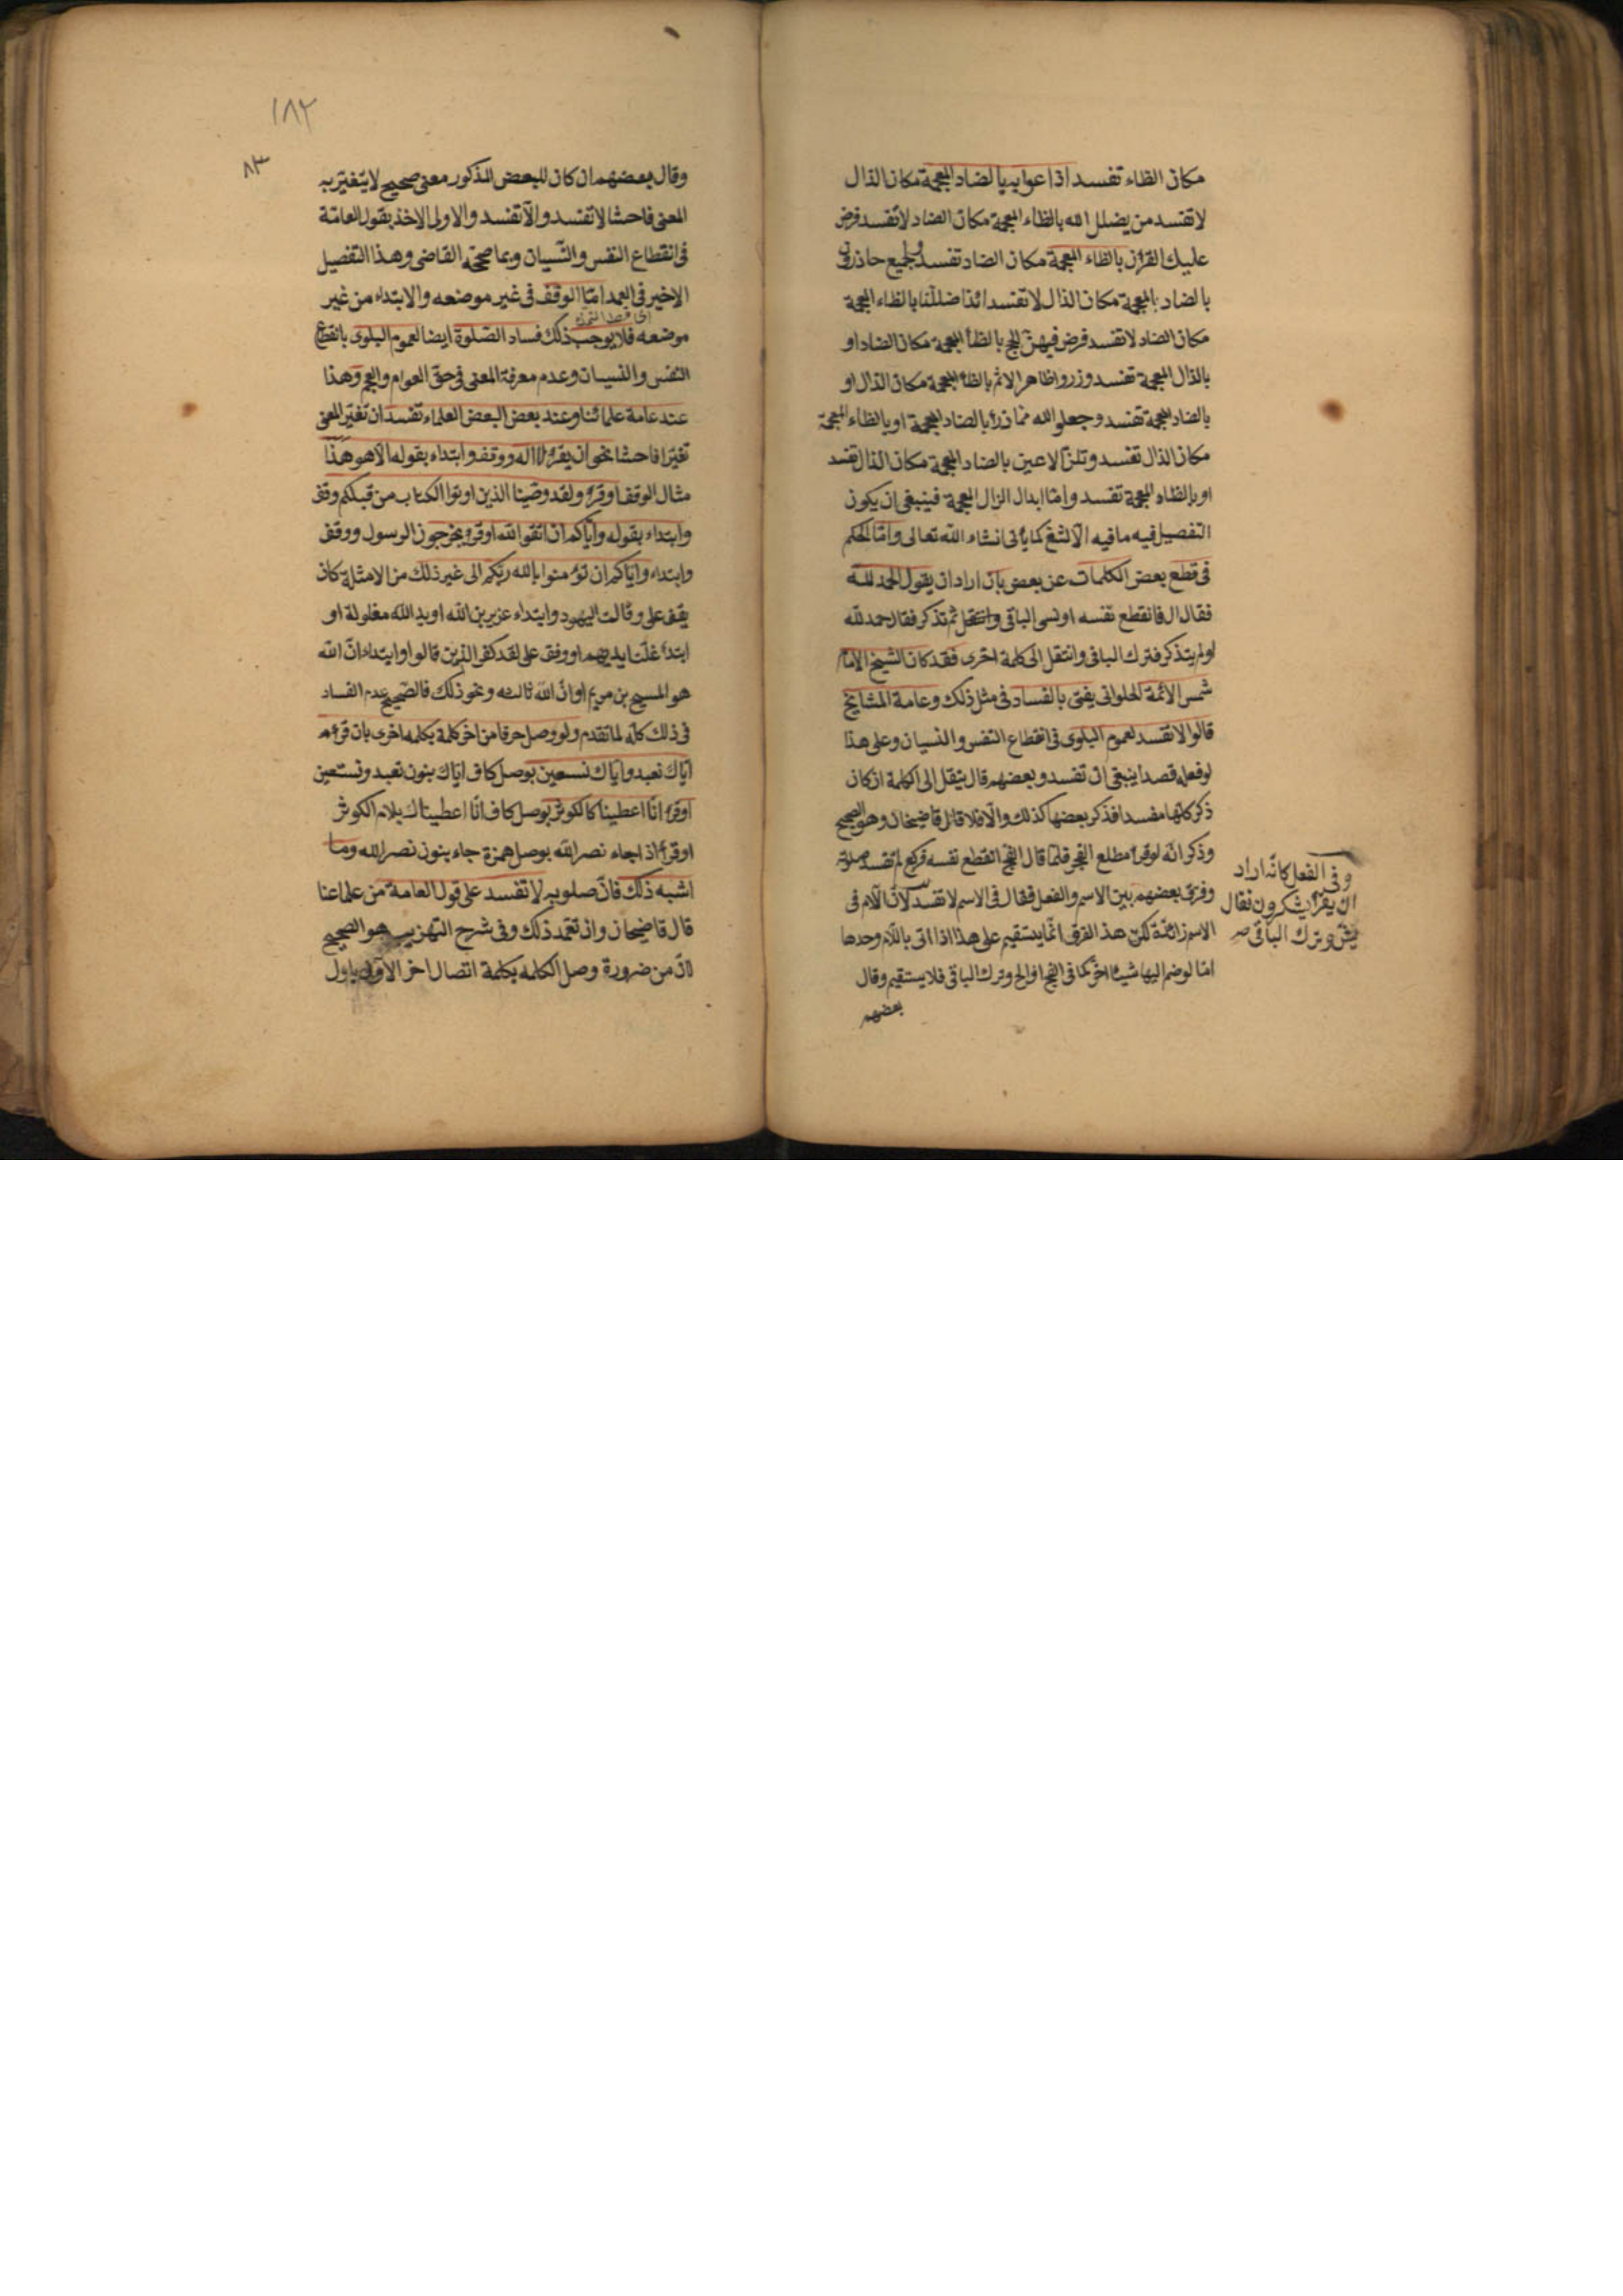 مكان الظاء تفسد اذا عوابه بالضاد المعجمة مكان الذال
لا تفسد من يضلل الله بالظاء المعجمة مكان الضاد لا تفسد فرض
عليك القرأن بالظاء المعجمة مكان الضاد تفسد لجميع حاذرون
بالضاد المعجمة مكان الذال لا تفسد ائذا ضللنا بالظاء المعجمة
مكان الضاد لا تفسد فرض فيهن الحج بالظأ المعجمة مكان الضاد او
بالذال المعجمة تفسد وزروا ظاهر الاثم بالظأ المعجمة مكان الذال او
بالضاد المعجمة تفسد وجعلوا لله مما ذرأ بالضاد المعجمة او بالظاء المعجمة
مكان الذال تفسد وتلذ الاعين بالضاد المعجمة مكان الذال تفسد
او بالظاء المعجمة تفسد وامّا ابدال الزال المعجمة فينبغى ان يكون
التفصيل فيه ما فيه الالثغ كما يأتى انشاء الله تعالى وامّا الحكم
فى قطع بعض الكلمات عن بعض بان اراد ان يقول الحمد لله
فقال ال فانقطع نفسه او نسى الباقى ثم تذكر فقال حمد لله
او لم يتذكر فترك الباقى وانتقل الى كلمة اخرى فقد كان الشيخ الامام
شمس الائمة الحلوانى يفتى بالفساد فى مثل ذلك وعامة المشايخ
قالوا لا تفسد لعموم البلوى فى انقطاع النفس والنسيان وعلى هذا
لو فعله قصدا ينبغى ان تفسد وبعضهم قال ينقل الى الكلمة ان كان
ذكر كلّها مفسدا فذكر بعضها كذلك والّا فلا قال قاضيخان وهو الصحيح
وذكر انّه لو قرأ مطلع الفجر فلمّا قال الفج انقطع نفسه فركع لم تفسد صلوته
وفرق بعضهم بين الاسم والفعل فقال فى الاسم لا تفسد لانّ اللام فى
الاسم زائدة لكن هذا الفرق انّما يستقيم على هذا اذا اتى باللام وحدها
امّا لو ضم اليها شيئا اخر كما فى الفج او الح وترك الباقى فلا يستقيم وقال
بعضهم
وفى الفعل كانّه اراد
ان يقرأ يشكرون فقال
يش وترك الباقى صح
١٨٢
٨٣
وقال بعضهم ان كان للبعض المذكور معنى صحيح لا يتغيّر به
المعنى فاحشا لا تفسد والّا تفسد والاولى الاخذ بقول العامّة
فى انقطاع النفس والنّسيان وبما صحّحه القاضى وهذا التفصيل
الاخير فى العمد امّا الوقف فى غير موضعه والابتداء من غير
موضعه فلا يوجب ذلك فساد الصّلوة ايضا لعموم البلوى بانقطاع
النفس والنسيان وعدم معرفة المعنى فى حق العوام والعجم وهذا
عند عامة علمائنا وعند بعض البعض العلماء تفسد ان تغيّر المعنى
تغيّرا فاحشا نحو ان يقرأ لا اله ووقف وابتداء بقوله الّا هو هذا
مثال الوقف او قرأ ولقد وصّينا الذين اوتوا الكتاب من قبلكم وقف
وابتداء بقوله وايّاكم ان اتقوا الله او قرأ يخرجون الرسول ووقف
وابتداء وايّاكم ان تؤمنوا بالله ربكم الى غير ذلك من الامثلة كان
يقف على وقالت اليهود وابتداء عزير بن الله او يد الله مغلولة او
ابتدأ غلّت ايديهم او وقف على لقد كفر الذين قالوا وابتداء انّ الله
هو المسيح بن مريم او انّ الله ثالث ونحو ذلك فالصّحيح عدم الفساد
فى ذلك كلّه لما تقدم ولو وصل حرفا من اخر كلمة بكلمة اخرى بان قرأ
ايّاك نعبد وايّاك نستعين بوصل كاف ايّاك بنون نعبد ونستعين
او قرأ انّا اعطيناك الكوثر بوصل كاف انّا اعطيناك بلام الكوثر
او قرأ اذا جاء نصر الله بوصل همزة جاء بنون نصر الله وما
اشبه ذلك فانّ صلوته لا تفسد على قول العامة من علماءنا
قال قاضيخان وان تعمد ذلك وفى شرح التهزيب هو الصحيح
لانّ من ضرورة وصل الكلمة بكلمة اتصال اخر الاولى باول